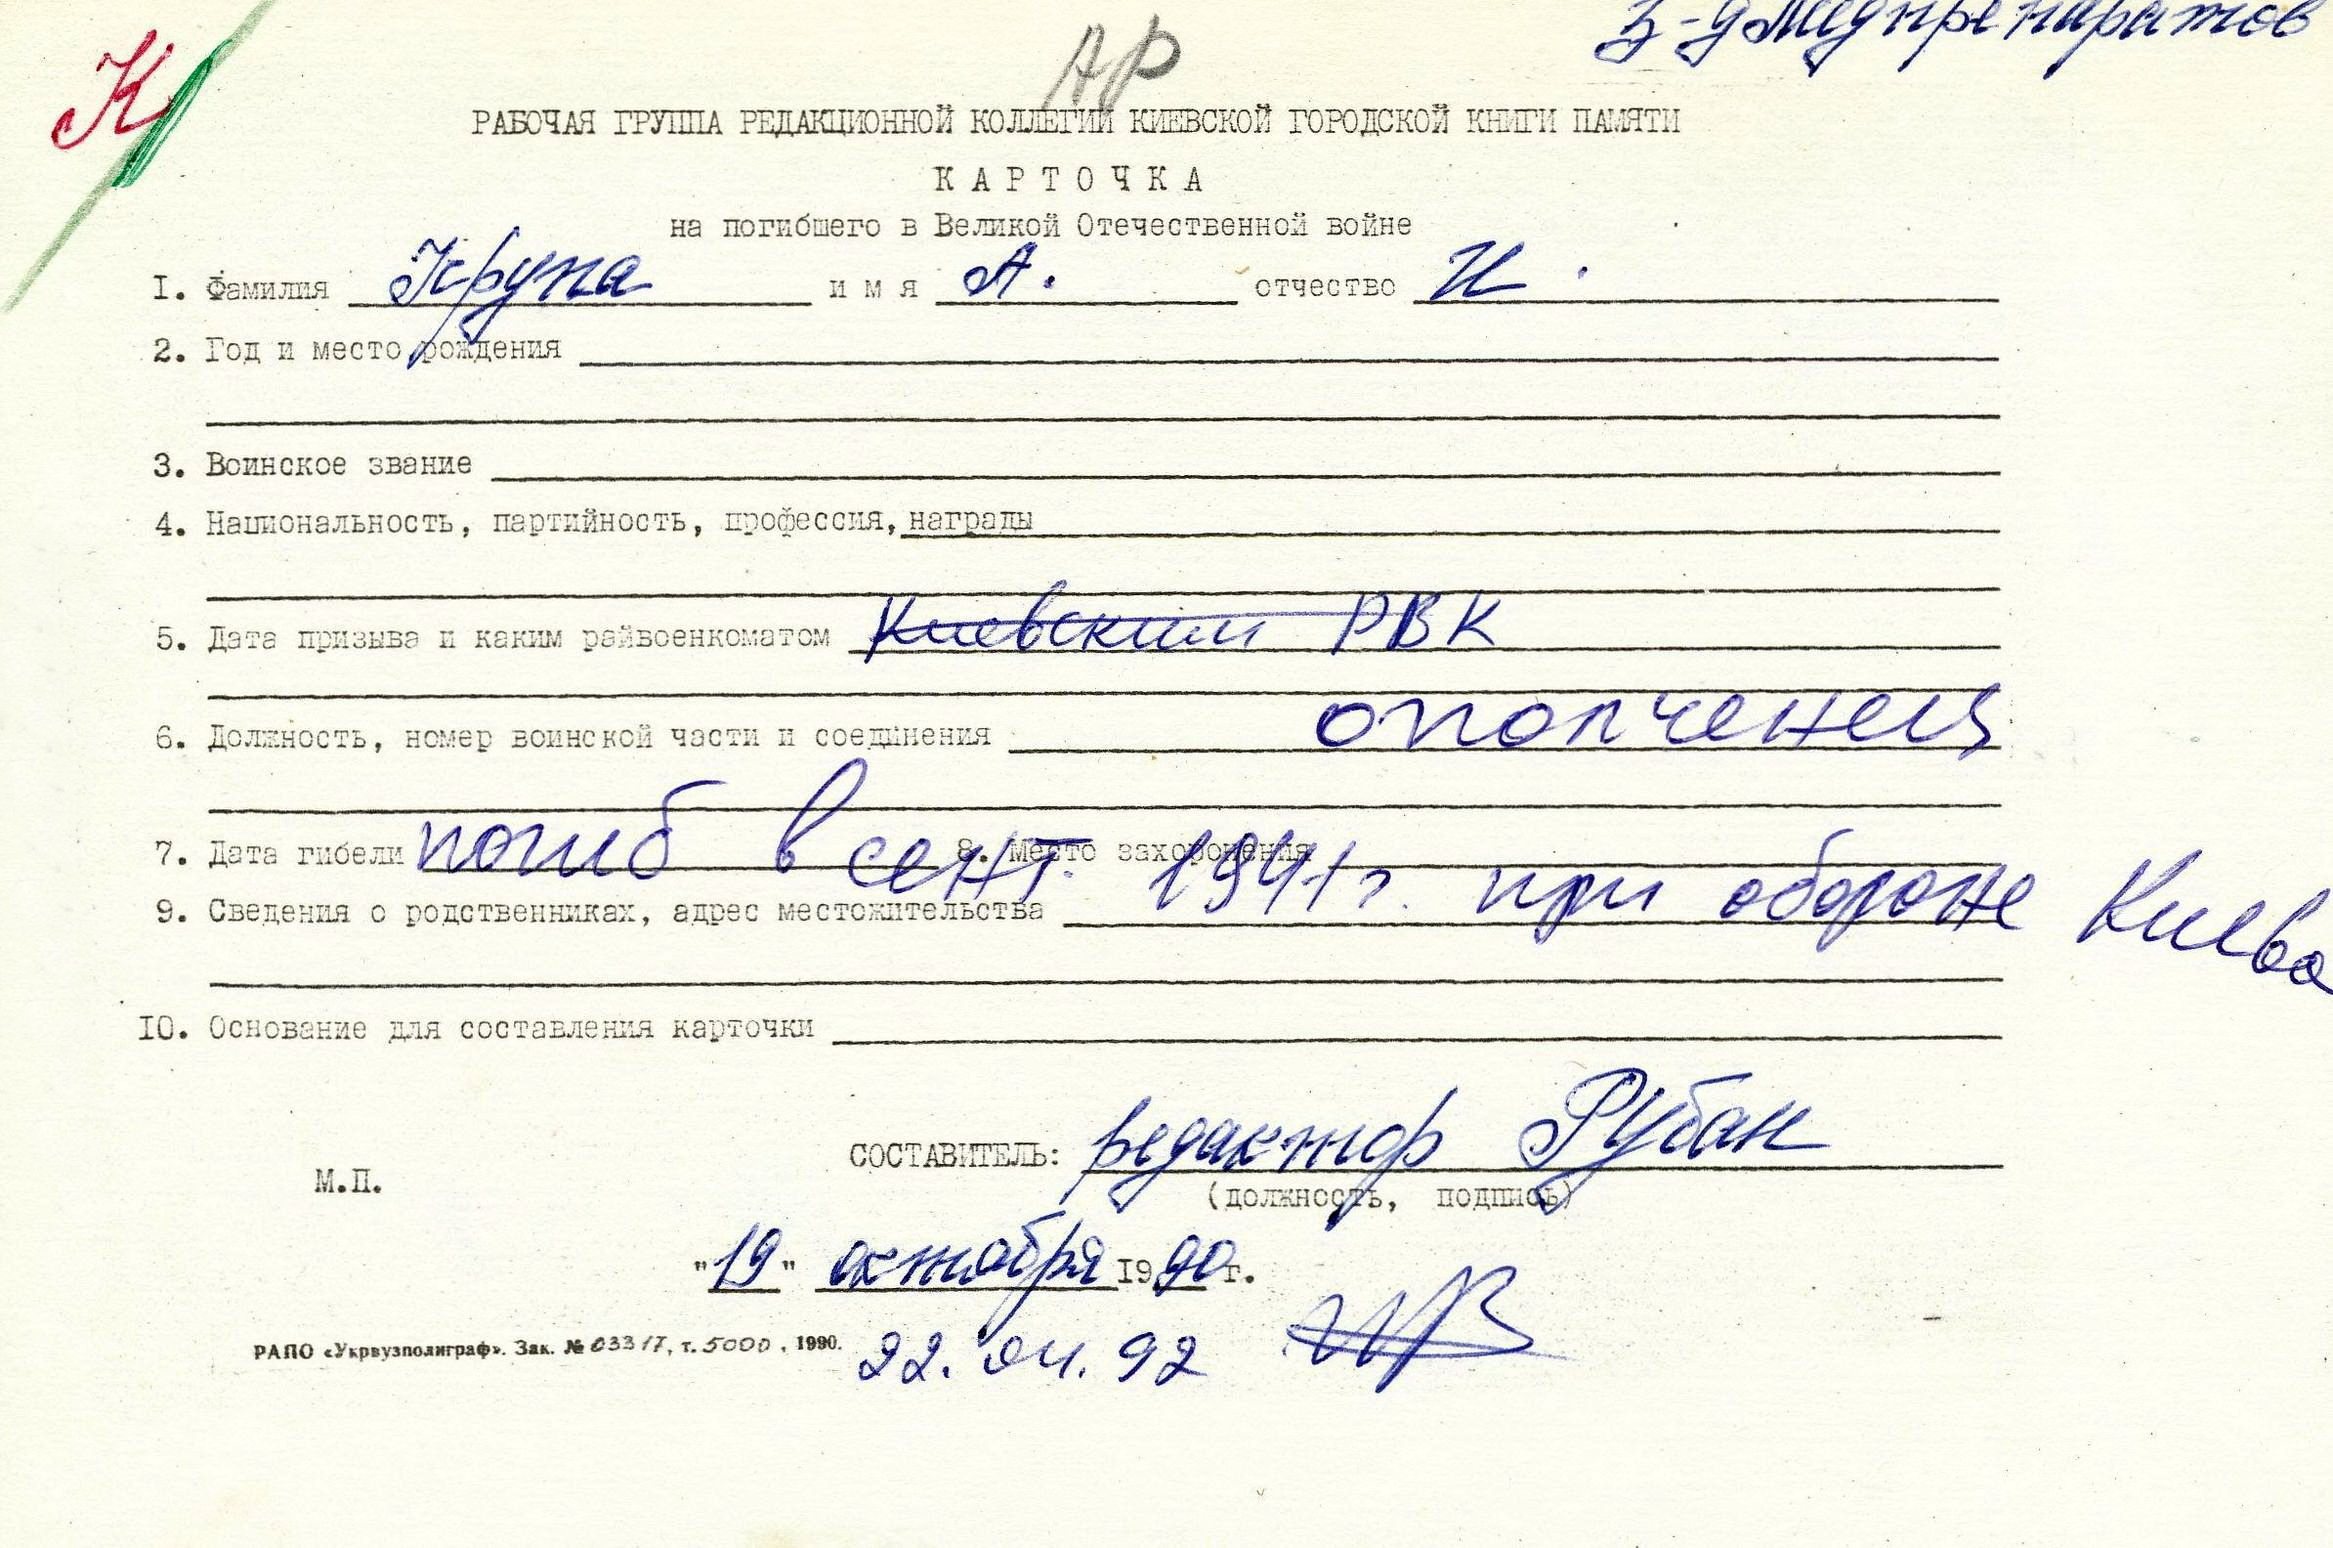 З-д Медпрепаратов
К
АР
РАБОЧАЯ ГРУППА РЕДАКЦИОННОЙ КОЛЛЕГИИ КИЕВСКОЙ ГОРОДСКОЙ КНИГИ ПАМЯТИ
КАРТОЧКА
на погибшего в Великой Отечественной войне
1. Фамилия Крупа имя А. отчество И.
2. Год и место рождения
3. Воинское звание
4. Национальность, партийность, профессия, награды
5. Дата призыва и каким райвоенкоматом Киевским РВК
ополченец
6. Должность, номер воинской части и соединения
7. Дата гибели погиб в сент. 1941 г. при обороне Киева
8. Место захоронения
9. Сведения о родственниках, адрес местожительства
10. Основание для составления карточки
СОСТАВИТЕЛЬ: редактор Рубан
М.П.
(должность, подпись)
"19" октября 1990 г.
РАПО «Укрвузполиграф». Зак. № 03317, т. 5000, 1990.
22.04.92